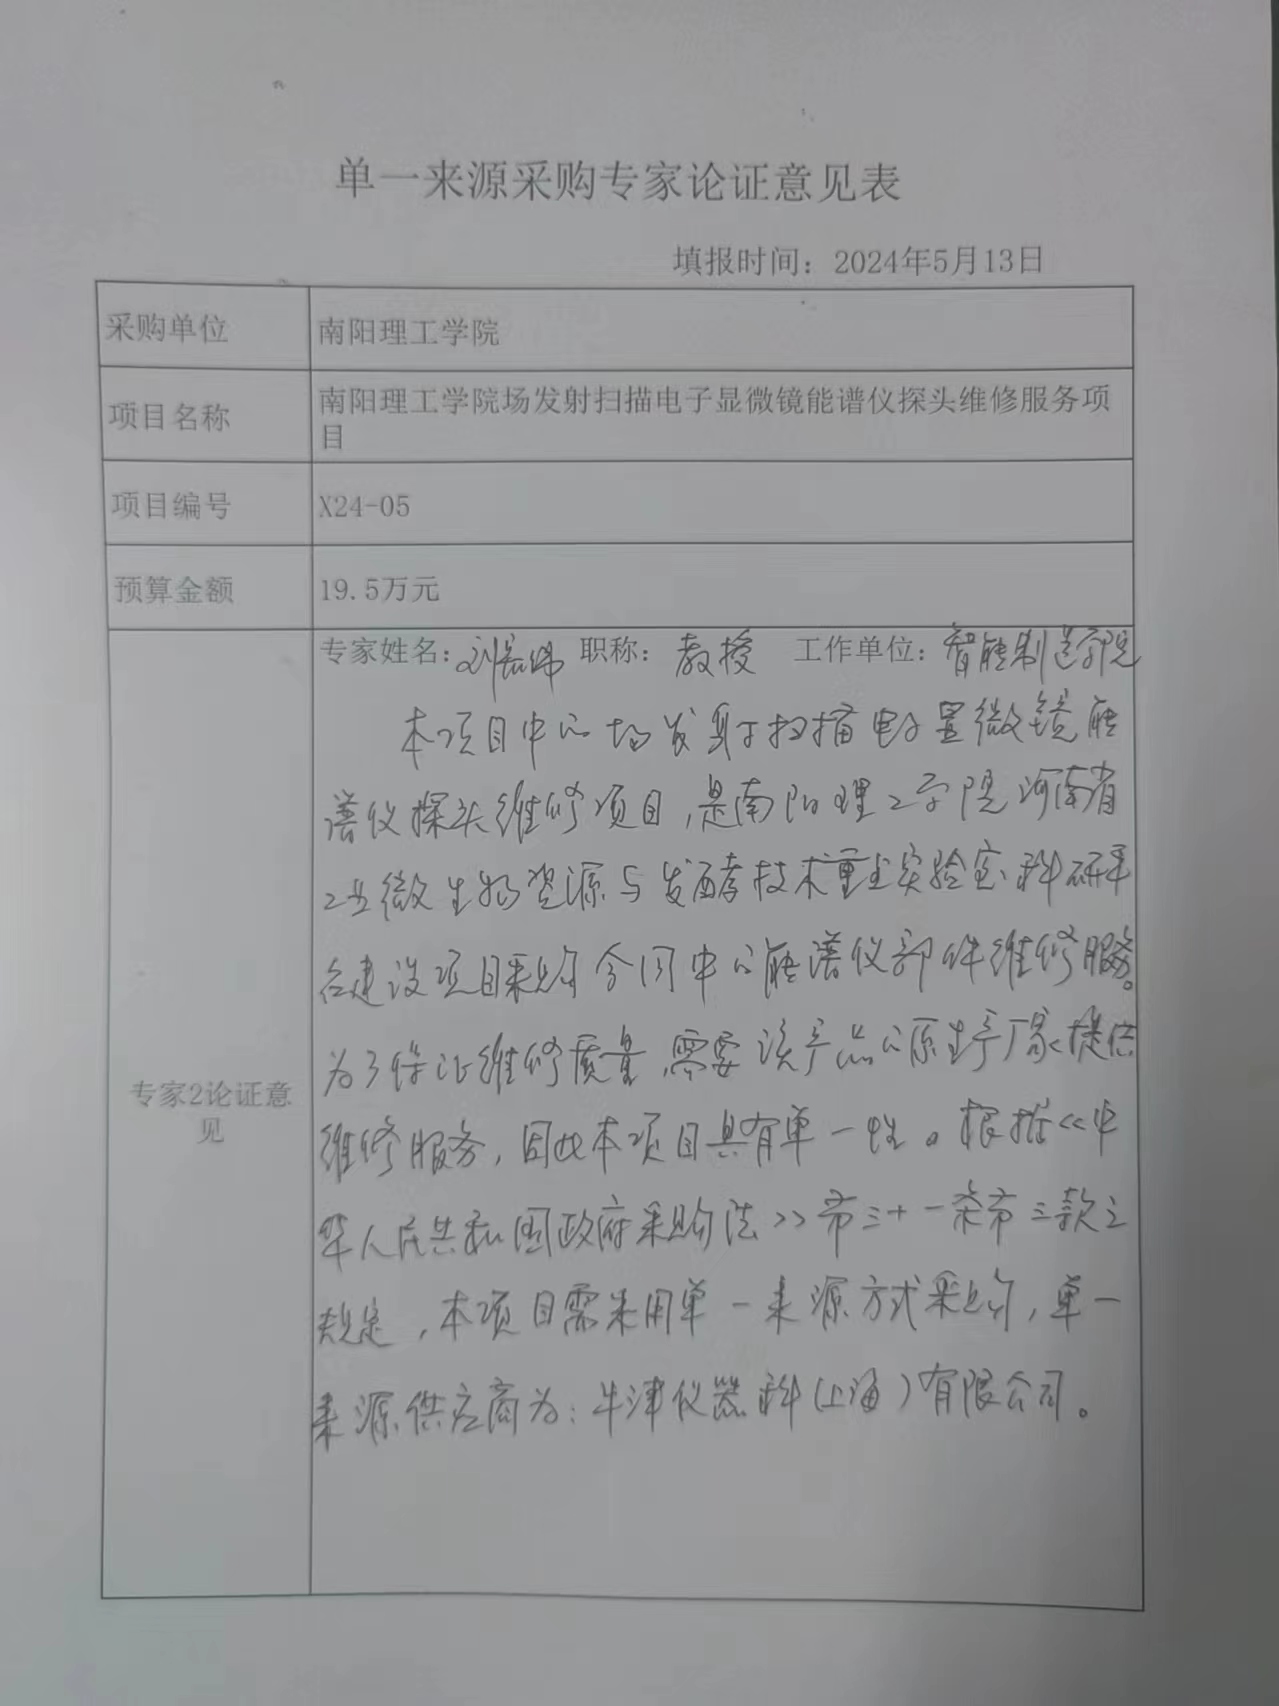 单一来源采购专家论证意见表
填报时间：2024年5月13日
采购单位
南阳理工学院
项目名称
南阳理工学院场发射扫描电子显微镜能谱仪探头维修服务项
目
项目编号
X24-05
预算金额
19.5万元
专家2论证意
见
专家姓名：刘 职称：教授 工作单位：智能制造学院
本项目中的场发射扫描电子显微镜能
谱仪探头维修项目，是南阳理工学院河南省
工业微生物资源与发酵技术重点实验室科研平
台建设项目采购合同中的能谱仪部件维修服务。
为了保证维修质量，需要该产品的原生产厂家提供
维修服务，因此本项目具有单一性。根据<<中
华人民共和国政府采购法>>第三十一条第三款之
规定，本项目需采用单一来源方式采购，单一
来源供应商为：牛津仪器科(上海)有限公司。